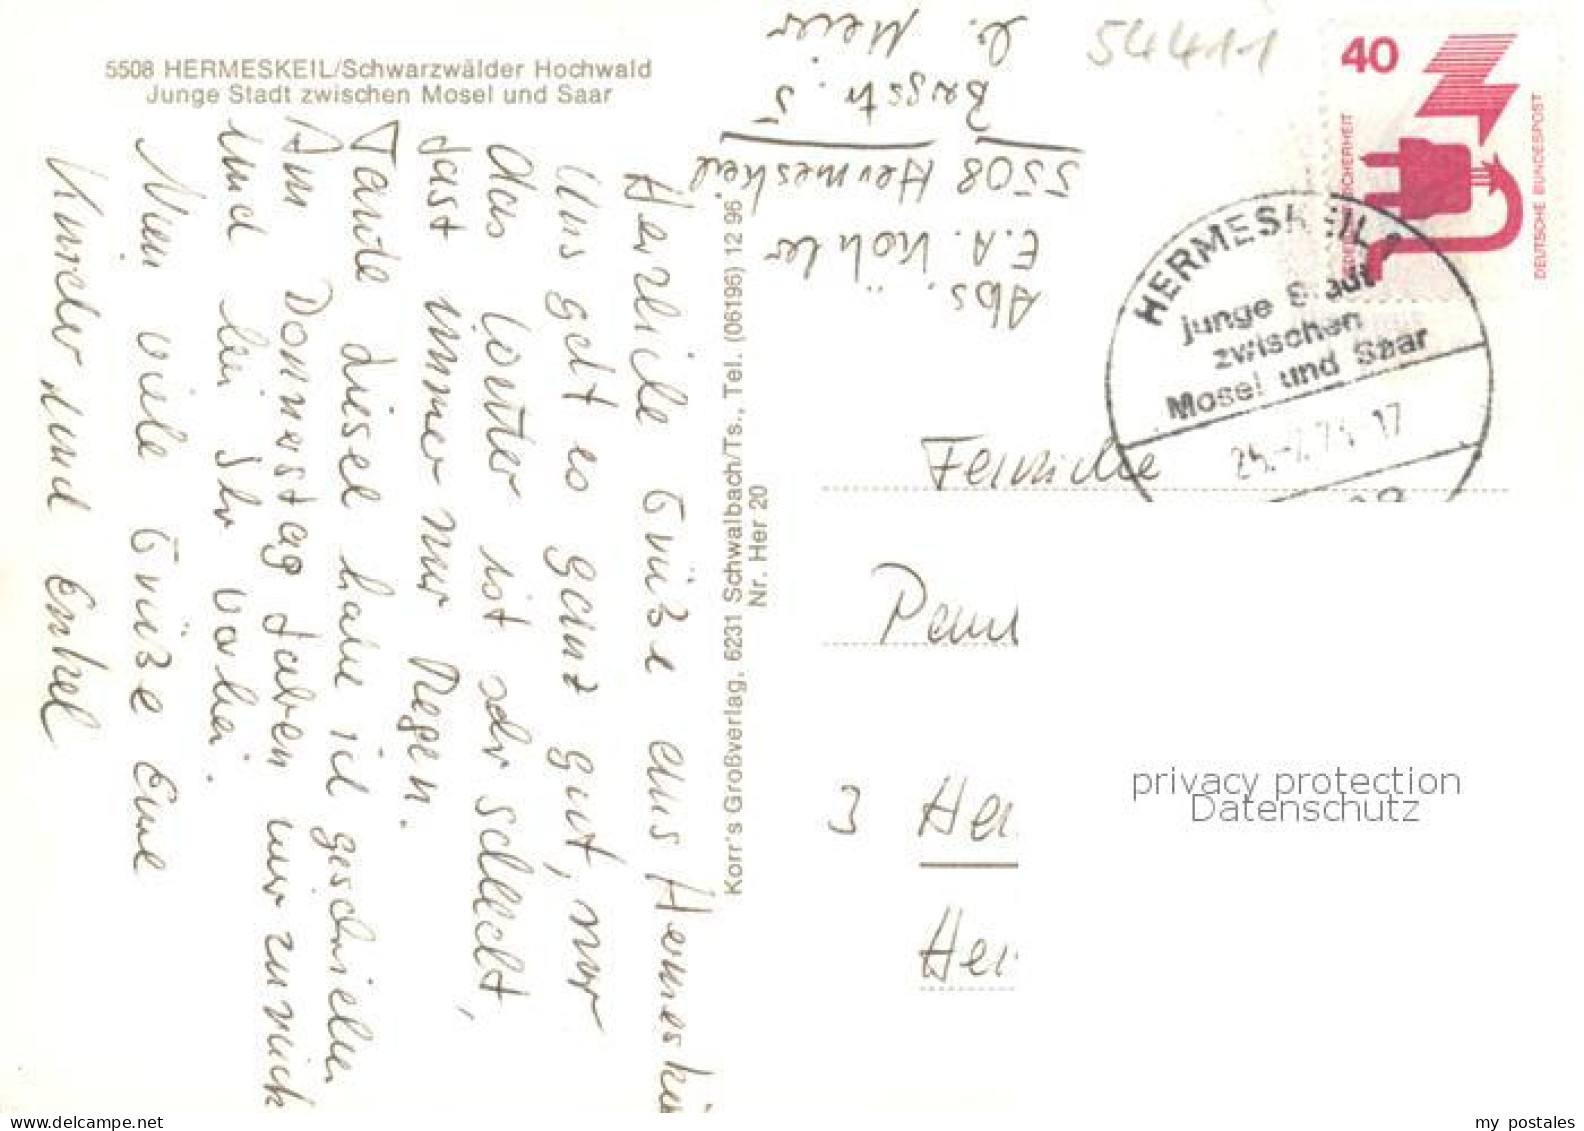 5508 HERMESKEIL/Schwarzwälder Hochwald
Junge Stadt zwischen Mosel und Saar
Herzliche Grüße aus Hermeskei
Uns geht es ganz gut, nur
das Wetter ist sehr schlecht,
fast immer nur Regen.
Tante diesel habe ich geschrieben
Am Donnerstag fahren wir zurück
und bei Ihr vorbei.
Nun viele Grüße Eure
Kinder und Enkel
Korr's Großverlag, 6231 Schwalbach/Ts., Tel. (06196) 12 96
Nr. Her 20
Abs.
E.A. Köhler
5508 Hermeskeil
Bergstr. 5
b. Meier
54411
40
JEDERZEIT SICHERHEIT
DEUTSCHE BUNDESPOST
HERMESKEIL
junge Stadt
zwischen
Mosel und Saar
Familie
Paul
3 Han
Han
privacy protection
Datenschutz
www.delcampe.net
my_postales